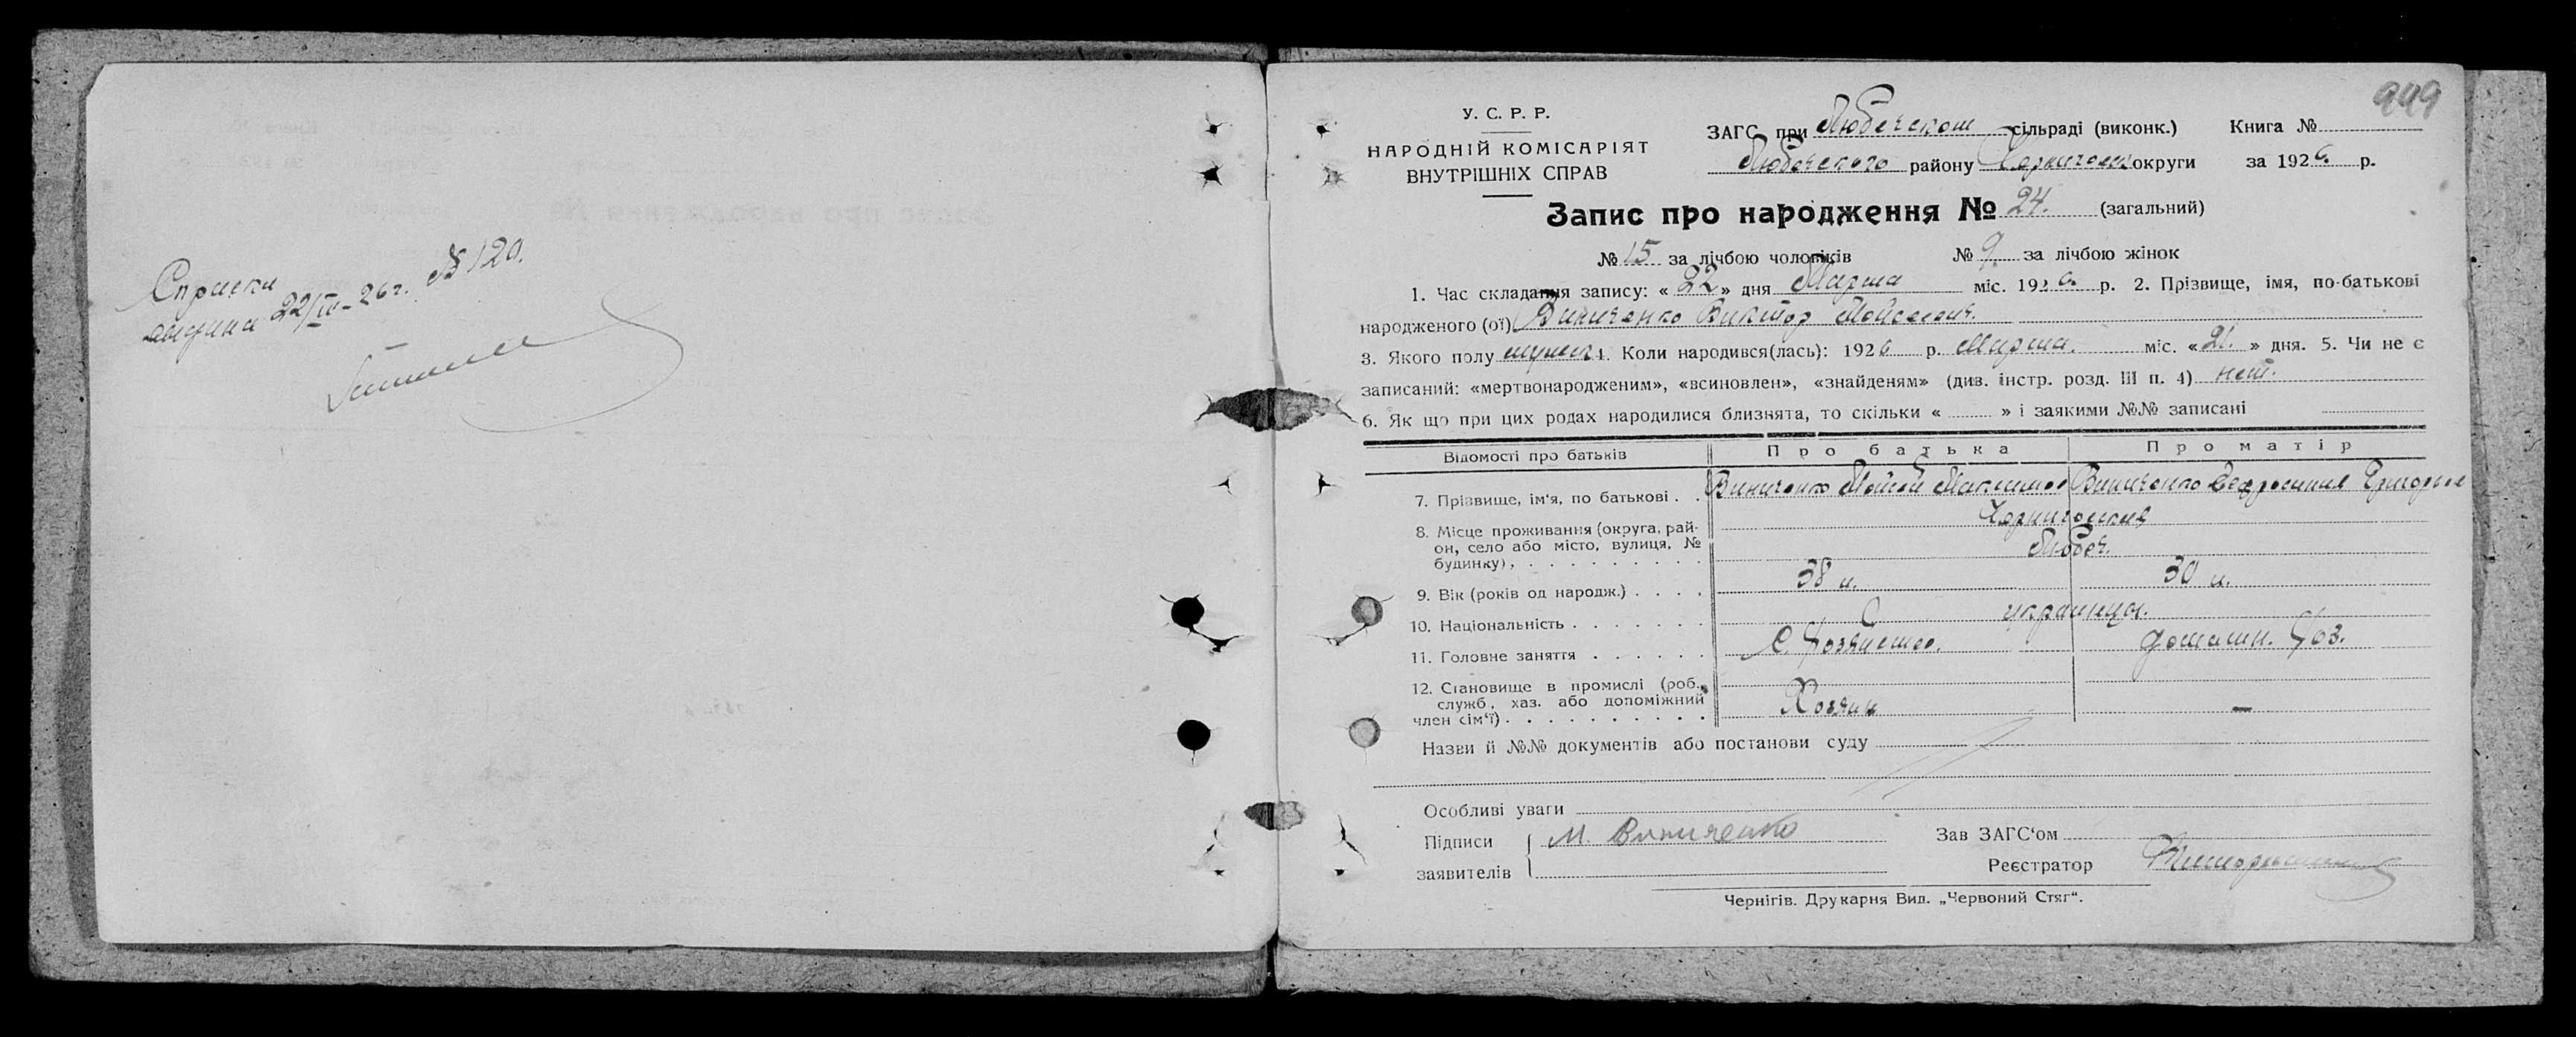 Справки
выдана 22/III-26г. № 120.
949
У. С. Р. Р.
НАРОДНІЙ КОМІСАРІЯТ
ВНУТРІШНІХ СПРАВ
ЗАГС при Любечском сільраді (виконк.) Книга №
Любечского району Черниговск округи за 1926 р.
Запис про народження № 24. (загальний)
№ 15 за лічбою чоловіків № 9. за лічбою жінок
1. Час складання запису: « 22 » дня Марта міс. 1926 р. 2. Прізвище, імя, по-батькові
народженого (ої) Виниченко Виктор Мойсеевич.
3. Якого полу мужск 4. Коли народився(лась): 1926 р. Марта. міс. « 21. » дня. 5. Чи не є
записаний: «мертвонародженим», «всиновлен», «знайденям» (див. інстр. розд. III п. 4) нет.
6. Як що при цих родах народилися близнята, то скільки « » і заякими №№ записані
Відомості про батьків Про батька Про матір
7. Прізвище, ім'я, по батькові . . Виниченко Мойсей Максимов Виниченко Ефросиния Григорьев
8. Місце проживання (округа, рай- Черниговския
он, село або місто, вулиця, № Любеч.
будинку) . . . . . . . . . .
9. Вік (років од народж.) . . . . 38 л. 30 л.
10. Національність . . . . . . . украинцы.
11. Головне заняття . . . . . . С. Хозяйство. домашн. Хоз.
12. Становище в промислі (роб.,
служб., хаз. або допоміжний
член сім'ї) . . . . . . . . . . Хозяин —
Назви й №№ документів або постанови суду
Особливі уваги
Підписи М. Виниченко Зав ЗАГС'ом
заявителів Реєстратор
Чернігів. Друкарня Вид. „Червоний Стяг“.